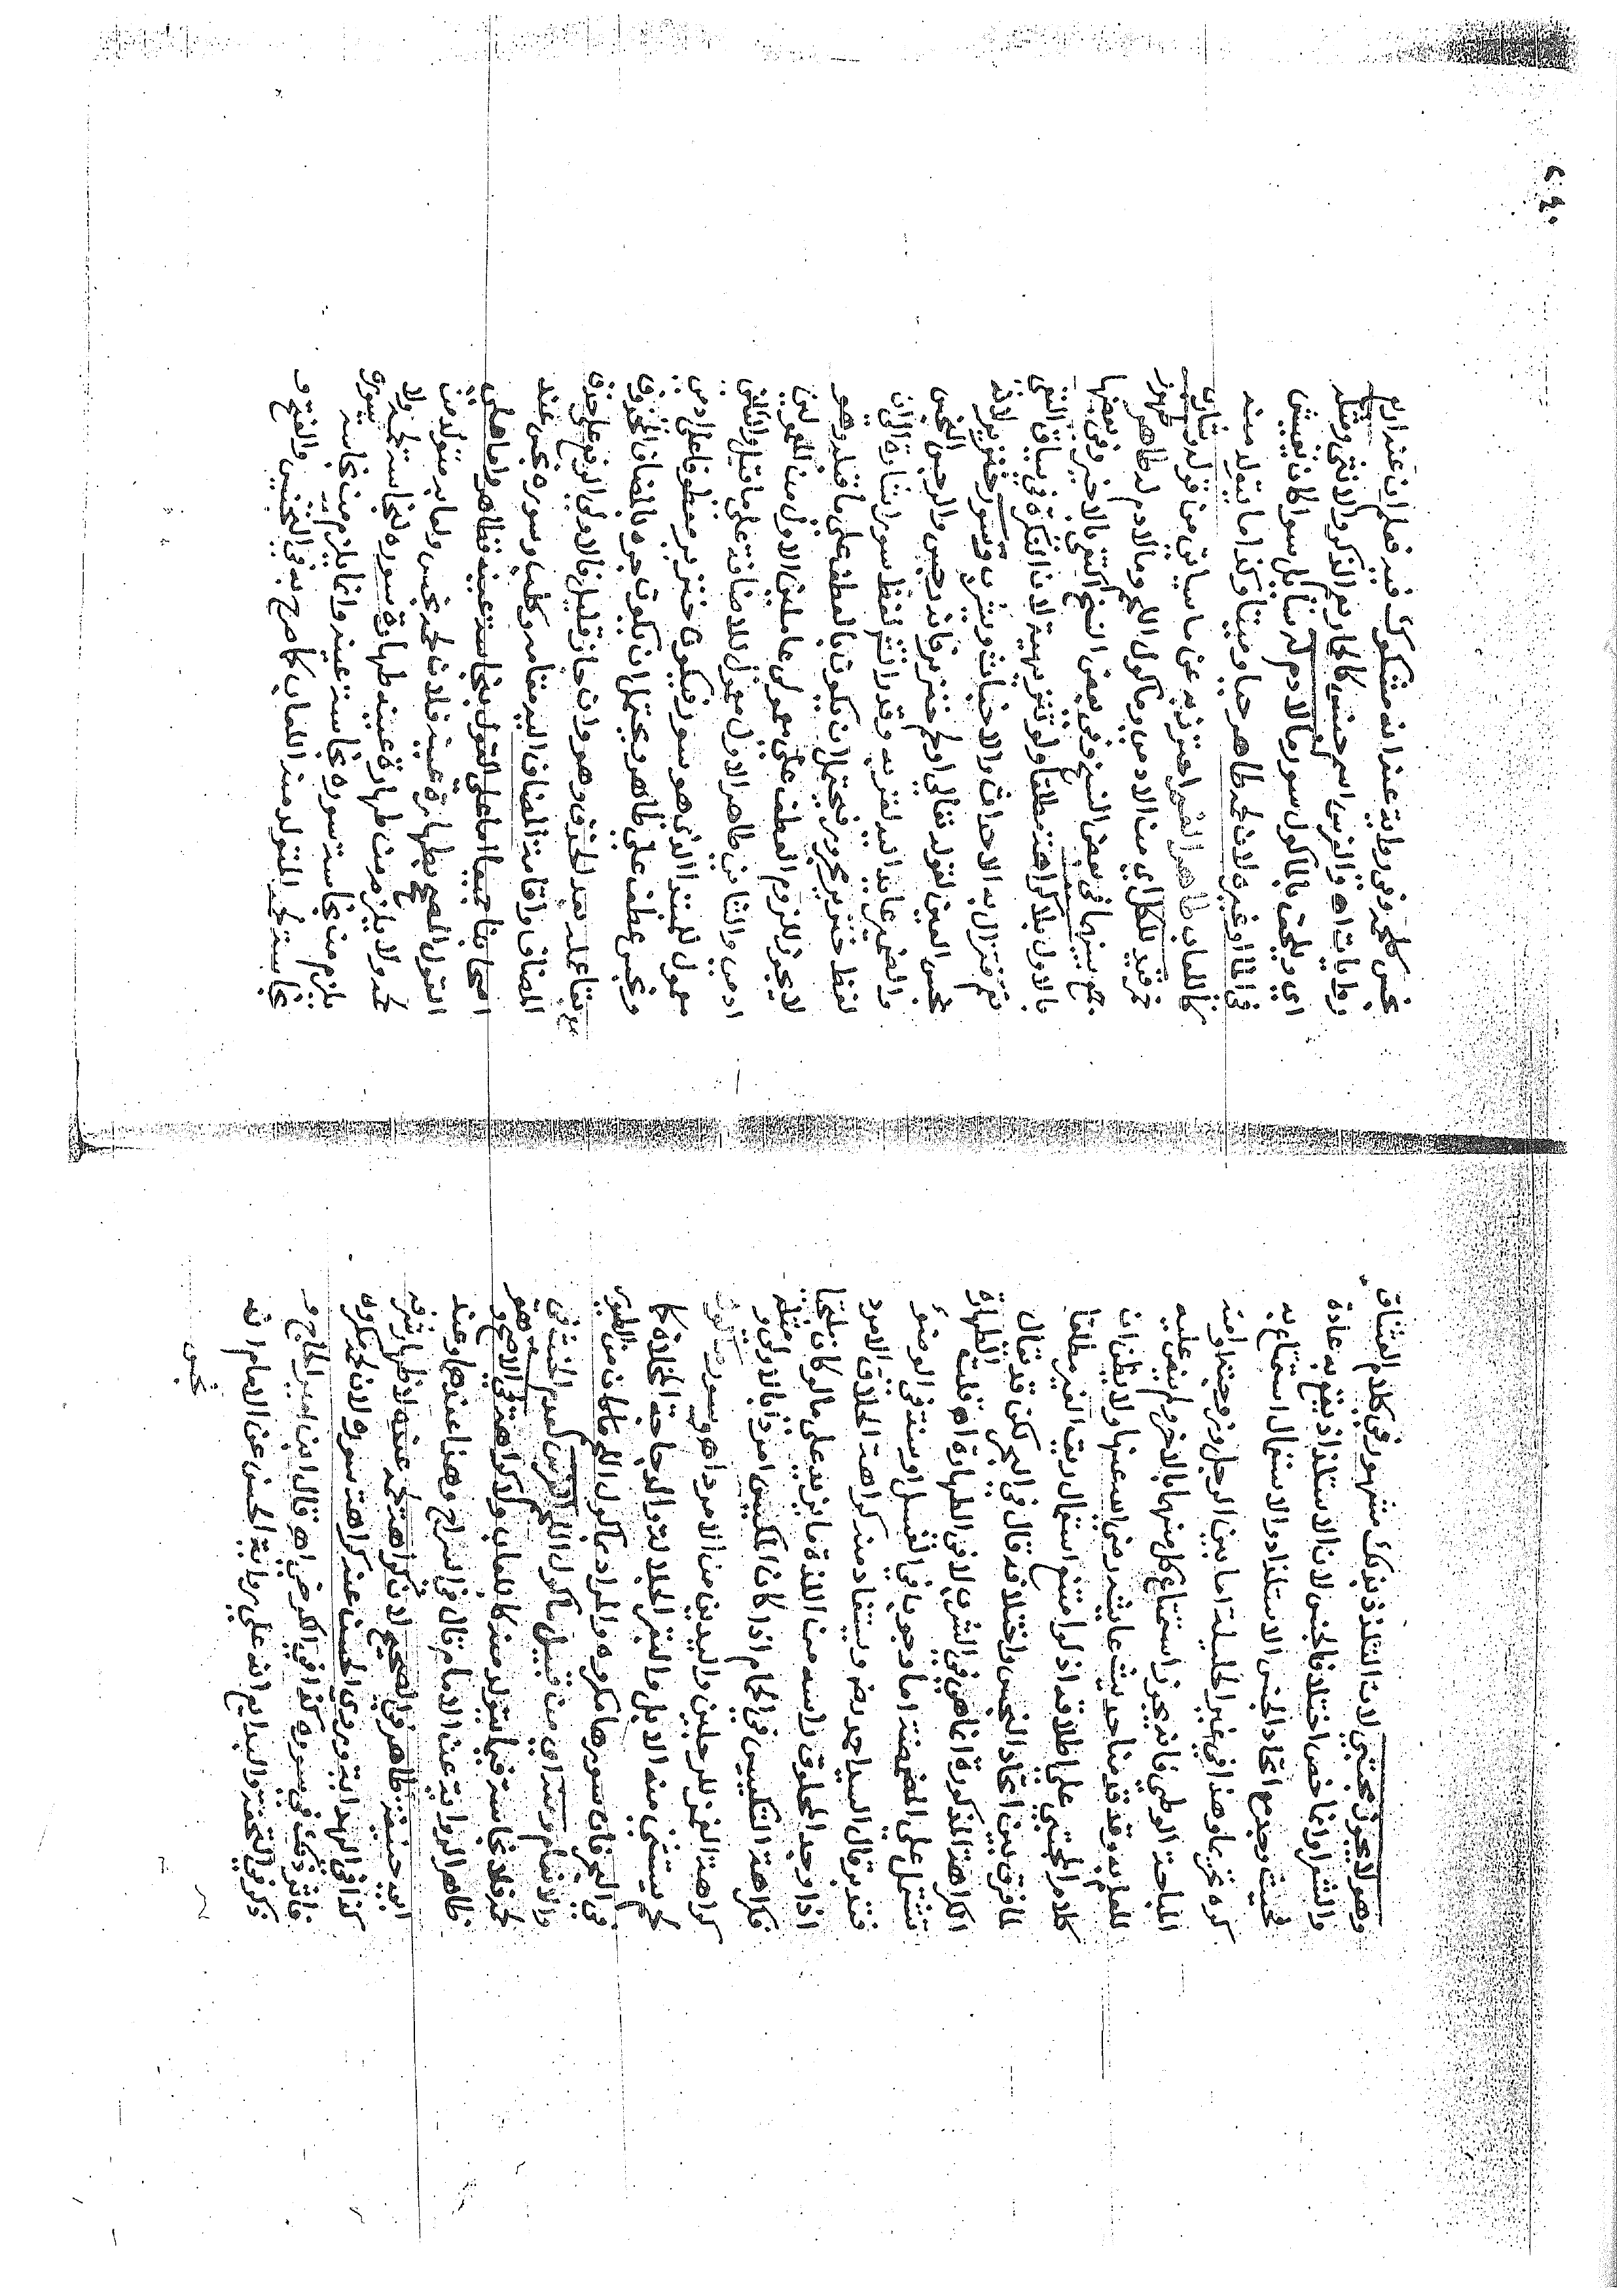 وهو لا يجوز مجتبى لان التلذذ بذلك مشهور في كلام العشاق
والشعرا وانما خص اختلاف الجنس لان الاستلذاذ يقع به عادة
فحيث وجد مع اتحاد الجنس الاستلذاذ والاستعمال استماع به
كره تحريما وهذا في غير الحليلة اما بين الرجل وزوجته او امته
المباحة الوطي فانه يجوز استمتاع كل منهما بالاخر ولم ينص عليه
للعلم به وقد قدمنا حديث عايشة رضي الله عنها ولا يظن ان
كلام المجتبى على اطلاقه اذ لو امتنع استعمال ريق الغير مطلقا
لما فرق بين اتحاد الجنس واختلافه قال في البحر لكن قد يقال
الكراهة المذكورة انما هي في الشرب لا في الطهارة اه قلت الطهارة
تشتمل على المضمضة اما وجوبا في الغسل او سنة في الوضوء
فتدبر قال السيد احمد رض ويستفاد منه كراهة الحلاق الامرد
اذا وجد المحلوق راسه من اللذة ما يزيد على ما لو كان ملتحيا
فكراهة التكييس في الحمام اذا كان المكيس امرد بالاولى ومثله
كراهة الغمز للرجلين واليدين من الامرد اه وسور ماكول
لحم يستثنى منه الابل والبقر الجلالة والدجاجة المخلاة كما
في البحر فان سورها مكروه والمراد بماكول اللحم ما كان من الطيور
والانعام وسياتي من قبيل ماكول اللحم الفرس لعدم الخبث في
لحمه فلا نجاسة فيما يتولد منه كاللعاب ولا كراهة في الاصح وهو
ظاهر الرواية عن الامام قال في السراج وهذا عندهما وعند
ابي حنيفة طاهر في الصحيح لان كراهة لحمه عنده لاظهار شرفه
كذا في الهداية وروى الحسن عنه كراهة سوره لان لحمه مكروه
فاثر ذلك في سوره كذا في الكرخي اه قال ابن امير الحاج و
ذكر في التحفة والبدايع انه على رواية الحسن عن الامام انه
نجس
نجس كلحمه وفي رواية عنه انه مشكوك فيه فعلم ان عنه اربع
روايات اه والفرس اسم جنس كالحمار يعم الذكر والانثى ومثله
اي ويلحق بالماكول سور مالا دم له سائل سوا كان يعيش
في الما او غيره لان لحمه طاهر حيا وميتا وكذا ما يتولد منه
كاللعاب طاهر الفم احترز به عن ما سياتي من قوله وشارب
خمر قيد للكل اي من الادمي وماكول اللحم ومالا دم له طاهر طهور
بضمير منها في بعض النسخ وفي بعض النسخ اكتفى بالاخير وفي بعضها
بالاول بلا كراهة مطلقا ولو تنزيهية لان النكرة في سياق النفي
تعم قتزال به الاحداث والاخباث ويشرب وسور خنزير لانه
نجس العين لقوله تعالى او لحم خنزير فانه رجس والرجس النجس
والضمير عائد اليه لقربه وقد رالشم لفظ سور اشارة الى ان
لفظ خنزير مجرور فيحتمل ان يكون بالعطف على ما قبله وهو
لا يجوز للزوم العطف على معمولي عاملين الاول من المعمولين
ادمي والثاني طاهر الاول معمول للاضافة على ما قيل والثاني
معمول للمبتدا الذي هو سور فيكون خنزير معطوفا على ادمي
ونجس عطف على طاهر ويحتمل ان يكون جره بالمضاف المحذوف
مع بقا عمله بعد الحذف وهو وان جاز قليل فالاولى الرفع على حذف
المضاف واقامة المضاف اليه مقامه وكلب وسوره نجس عند
اصحابنا جميعا اما على القول بنجاسة عينه فظاهر واما على
القول المصحح بطهارة عينه فلان لحمه نجس ولعابه متولد من
لحمه ولا يلزم من طهارة عينه طهارة سوره لنجاسة لحمه ولا
يلزم من نجاسة سوره نجاسة عينه وانما يلزم من نجاسة سوره
نجاسة لحمه المتولد منه اللعاب كما صرح به في التجنيس والفتح و